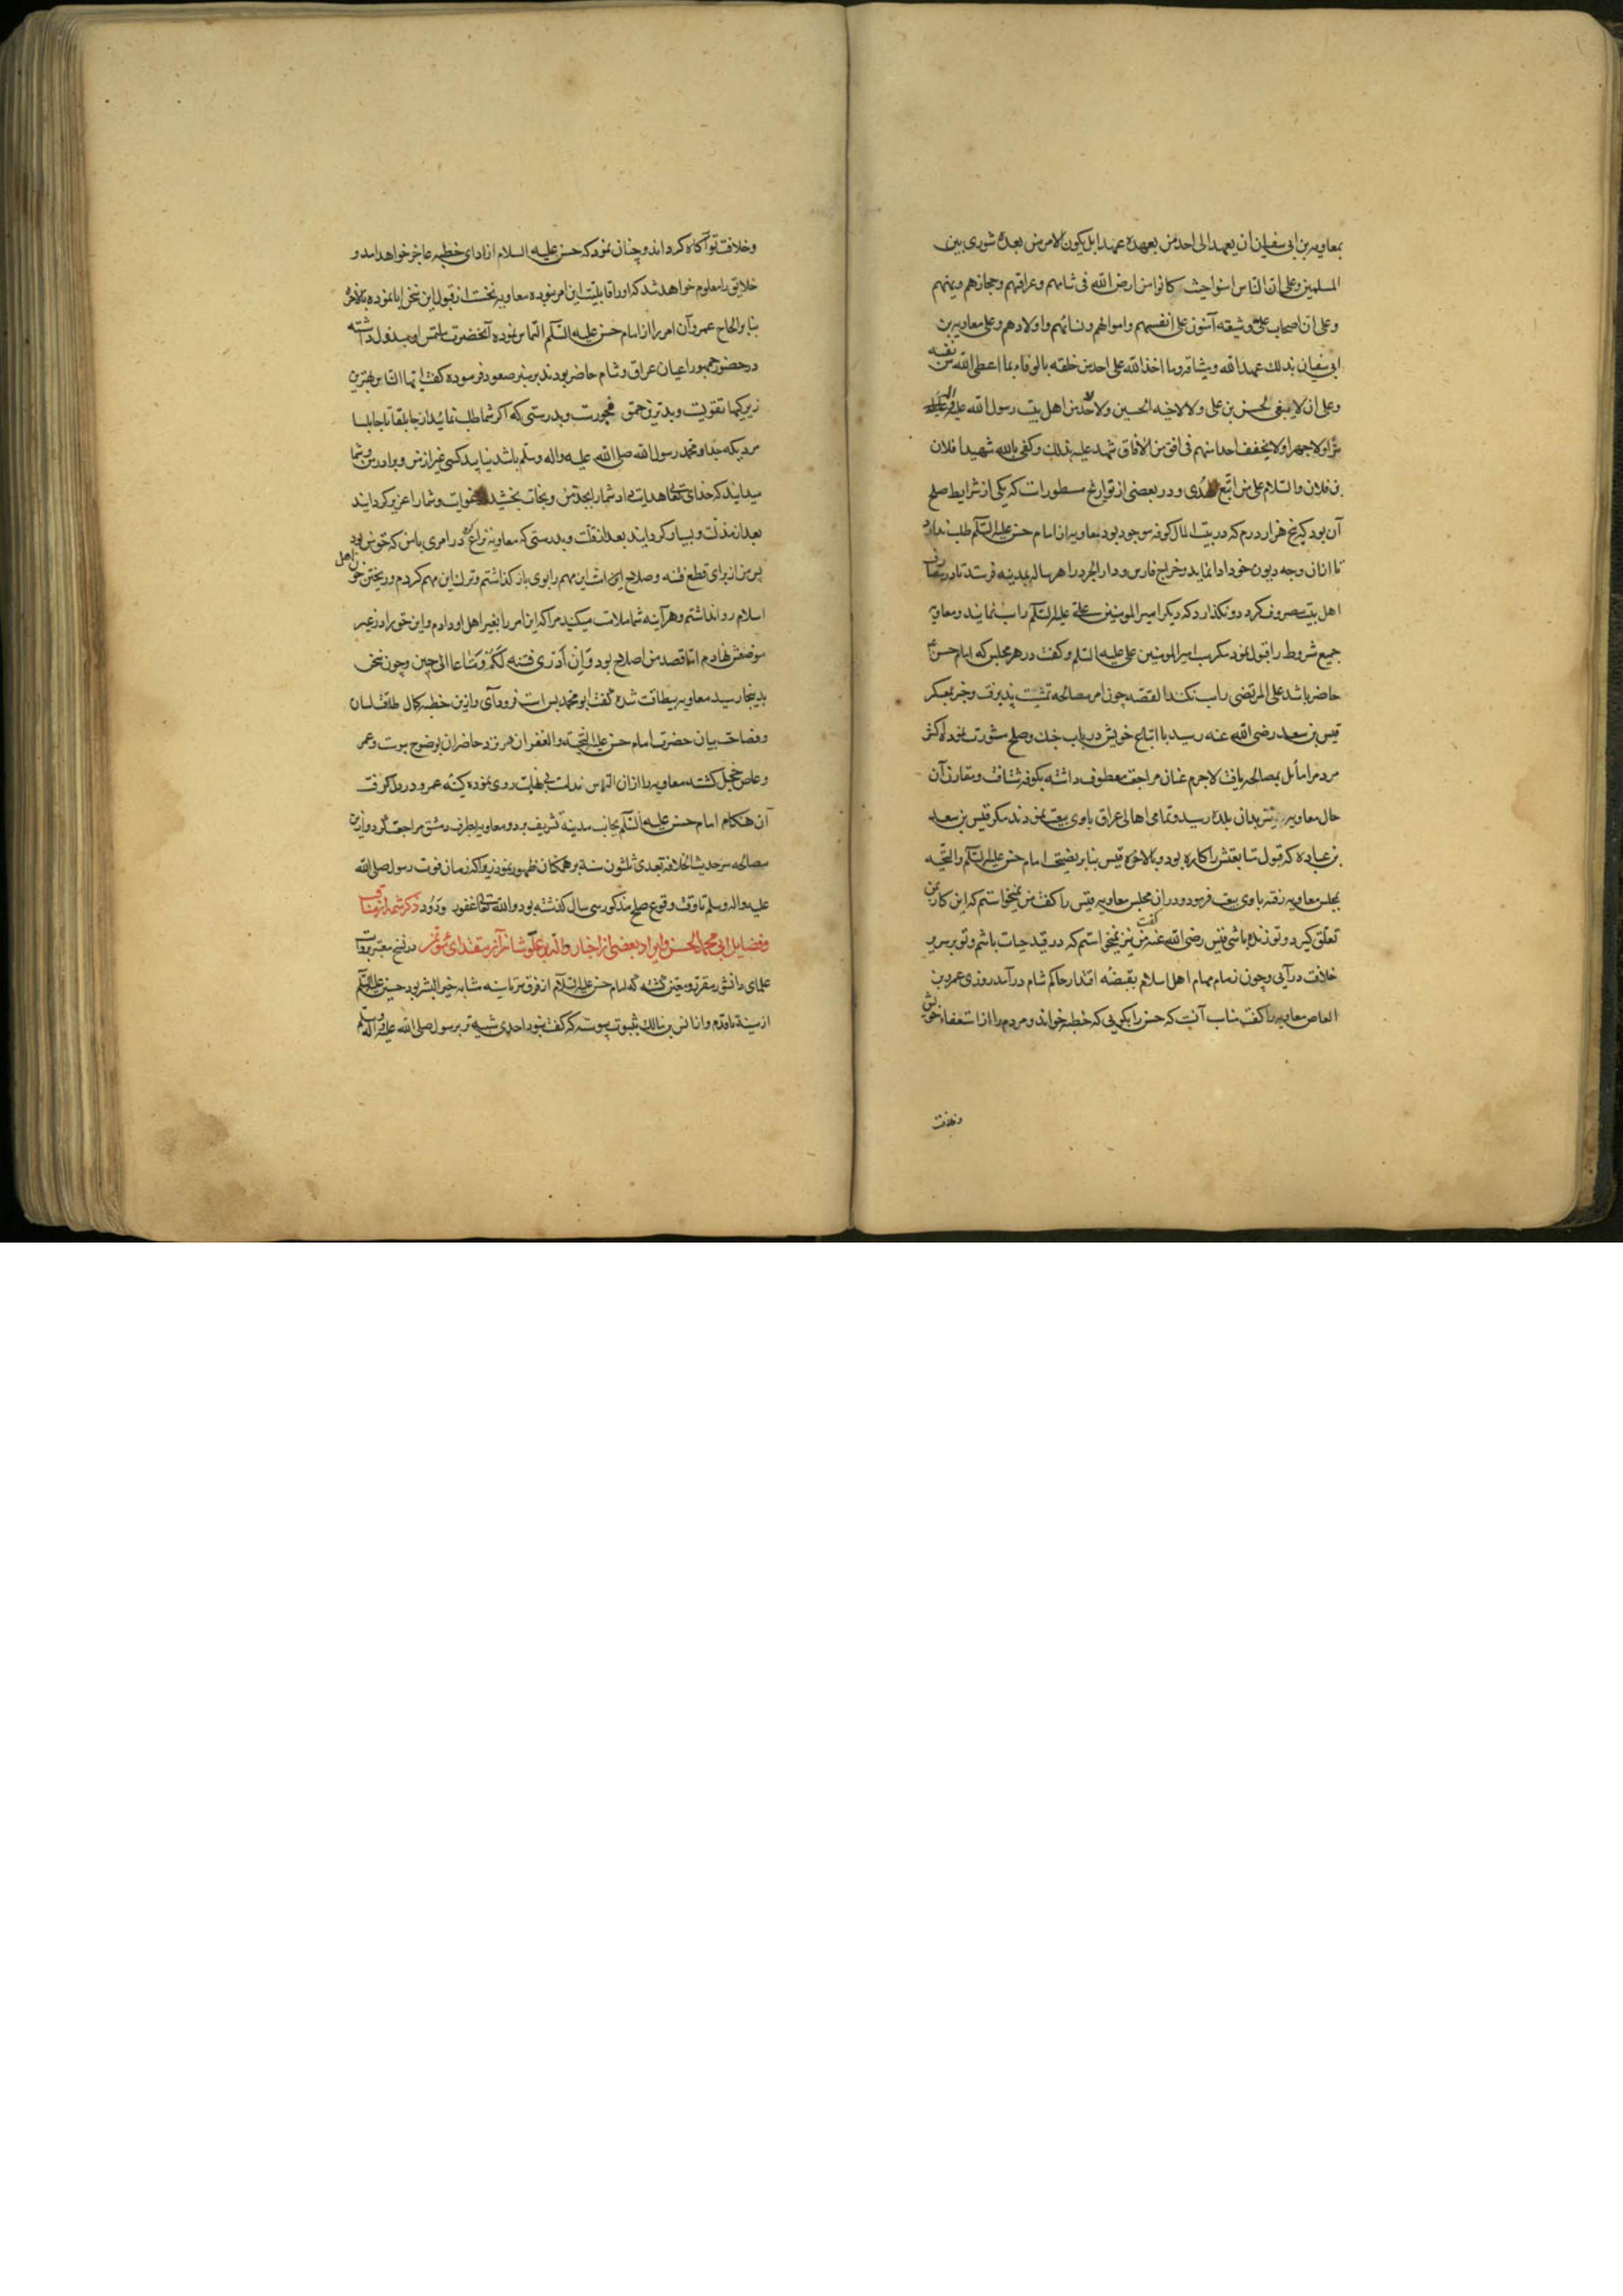 بمعاویه بن ابی سفیان ان یعهد الی احد من بعهده عهدا بل یکون الامر من بعده شوری بین
المسلمین و علی ان الناس امنوا حیث کانوا من ارض الله فی شامهم و عراقهم و حجازهم و یمنهم
و علی ان اصحاب علی و شیعته آمنون علی انفسهم و اموالهم و نسائهم و اولادهم و علی معاویه بن
ابی سفیان بذلک عهد الله و میثاقه و ما اخذ الله علی احد من خلقه بالوفاء بما اعطی الله من نفسه
و علی ان لا یبغی الحسن بن علی و لا لاخیه الحسین و لا لاحد من اهل بیت رسول الله
سرا و لا جهرا و لا یخفف احدا منهم فی افق من الافاق شهد علیه بذلک و کفی بالله شهیدا فلان
بن فلان و السلام علی من اتبع الهدی و در بعضی از تواریخ مسطورات که یکی از شرایط صلح
آن بود که پنج هزار درم که در بیت المال کوفه موجود بود معاویه از امام حسن علیه السلم طلب ندارد
تا از آن وجه دیون خود ادا نماید و خراج فارس و دارابجرد را هر ساله بمدینه فرستد تا در مصارف
اهل بیت مصروف کردد و نکذارد که دیکر امیر المومنین علی علیه السلم را سب نمایند و معاویه
جمیع شروط را قبول نمود مکر سب امیر المومنین علی علیه السلم و کفت در هر مجلس که امام حسن
حاضر باشد علی المرتضی را سب نکنند القصه چون امر مصالحه تمشیت پذیرفت و خبر بمعسکر
قیس بن سعد رضی الله عنه رسید با اتباع خویش در باب جنک و صلح مشورت نمود اکثر
مردم را مایل بمصالحه یافت لاجرم عنان مراجعت معطوف داشته بکوفه شتافت و مقارن آن
حال معاویه نیز بدان بلده رسید و تمامی اهالی عراق باوی بیعت نمودند مکر قیس بن سعد
بن عباده که قبول متابعتش را کاره بود و بالاخره قیس بنا بر نصیحت امام حسن علیه السلم و التحیه
بمجلس معاویه رفته باوی بیعت فرمود و در ان مجلس معاویه قیس را کفت من نمیخواستم که این کار بمن
تعلق کیرد و تو زنده باشی قیس رضی الله عنه کفت من نیز نمیخواستم که در قید حیات باشم و تو بر سریر
خلافت در آیی و چون زمام مهام اهل اسلام بقبضه اقتدار حاکم شام در آمد روزی عمرو بن
العاص معاویه را کفت مناسب آنست که حسن را بکویی که خطبه خواند و مردم را از استعفاء خویش
و خلافت
و خلافت تو آکاه کرداند و چنان نمود که حسن علیه السلام از ادای خطبه عاجز خواهد امد و
خلایق را معلوم خواهد شد که او را قابلیت این امر نبوده معاویه نخست از قبول این سخن ابا نموده بالاخره
بنا بر الحاح عمرو آن امر را از امام حسن علیه السلم التماس نموده آنحضرت ملتمس او مبذول داشته
در حضور جمهور اعیان عراق و شام حاضر بودند بر منبر صعود فرموده کفت ایها الناس بهترین
زیرکیها تقویست و بدترین حمق فجورست و بدرستی که اکر شما طلب نمائید از جابلقا تا جابلسا
مردیکه جد او محمد رسول الله صلی الله علیه و اله و سلم باشد نیابید کسی غیر از من و برادر من و شما
میدانید که خدای تعالی هدایت داد شما را بجد من و نجات بخشید از غوایت و شما را عزیز کردانید
بعد از مذلت و بسیار کردانید بعد از قلت و بدرستی که معاویه نزاع کرد در امری با من که حق من بود
پس من از برای قطع فتنه و صلاح این مهم را بوی باز کذاشتم و ترک این مهم کردم و ریختن خون اهل
اسلام روا نداشتم و هر آینه شما ملامت میکنید مرا که این امر را بغیر اهل او دادم و این حق را در غیر
موضعش نهادم اما قصد من اصلاح بود و ان ادری فتنه لکم و متاعا الی حین و چون سخن
بدینجا رسید معاویه بیطاقت شده کفت ابو محمد بس است فرود آی و ازین خطبه کمال طلاقت لسان
و فصاحت بیان حضرت امام حسن علیه التحیه و الغفران نزد حاضران بوضوح پیوست و عمر
و عاص خجل کشت معاویه را از ان التماس ندامت بی نهایت روی نموده کینه عمرو در دل کرفت
آن هنکام امام حسن علیه السلم بجانب مدینه تشریف برد و معاویه بطرف دمشق مراجعت کرد و از این
مصالحه سر حدیث الخلافة بعدی ثلثون سنة بر همکنان ظهور نمود زیرا که از زمان فوت رسول صلی الله
علیه و اله و سلم تا وقت وقوع صلح مذکور سی سال کذشته بود و الله تعالی غفور ودود ذکر شمه از مناقب
و فضایل ابی محمد الحسن و ایراد بعضی از اخبار در نسخ معتبره
علمای دانشور مقرر و معین کشته که امام حسن علیه السلام از فرق سر تا سینه مشابه خیر البشر بود حسین علیه السلم
از سینه تا قدم و از انس بن مالک بثبوت پیوسته که کفت نبود احدی شبیه تر برسول صلی الله علیه و آله و سلم